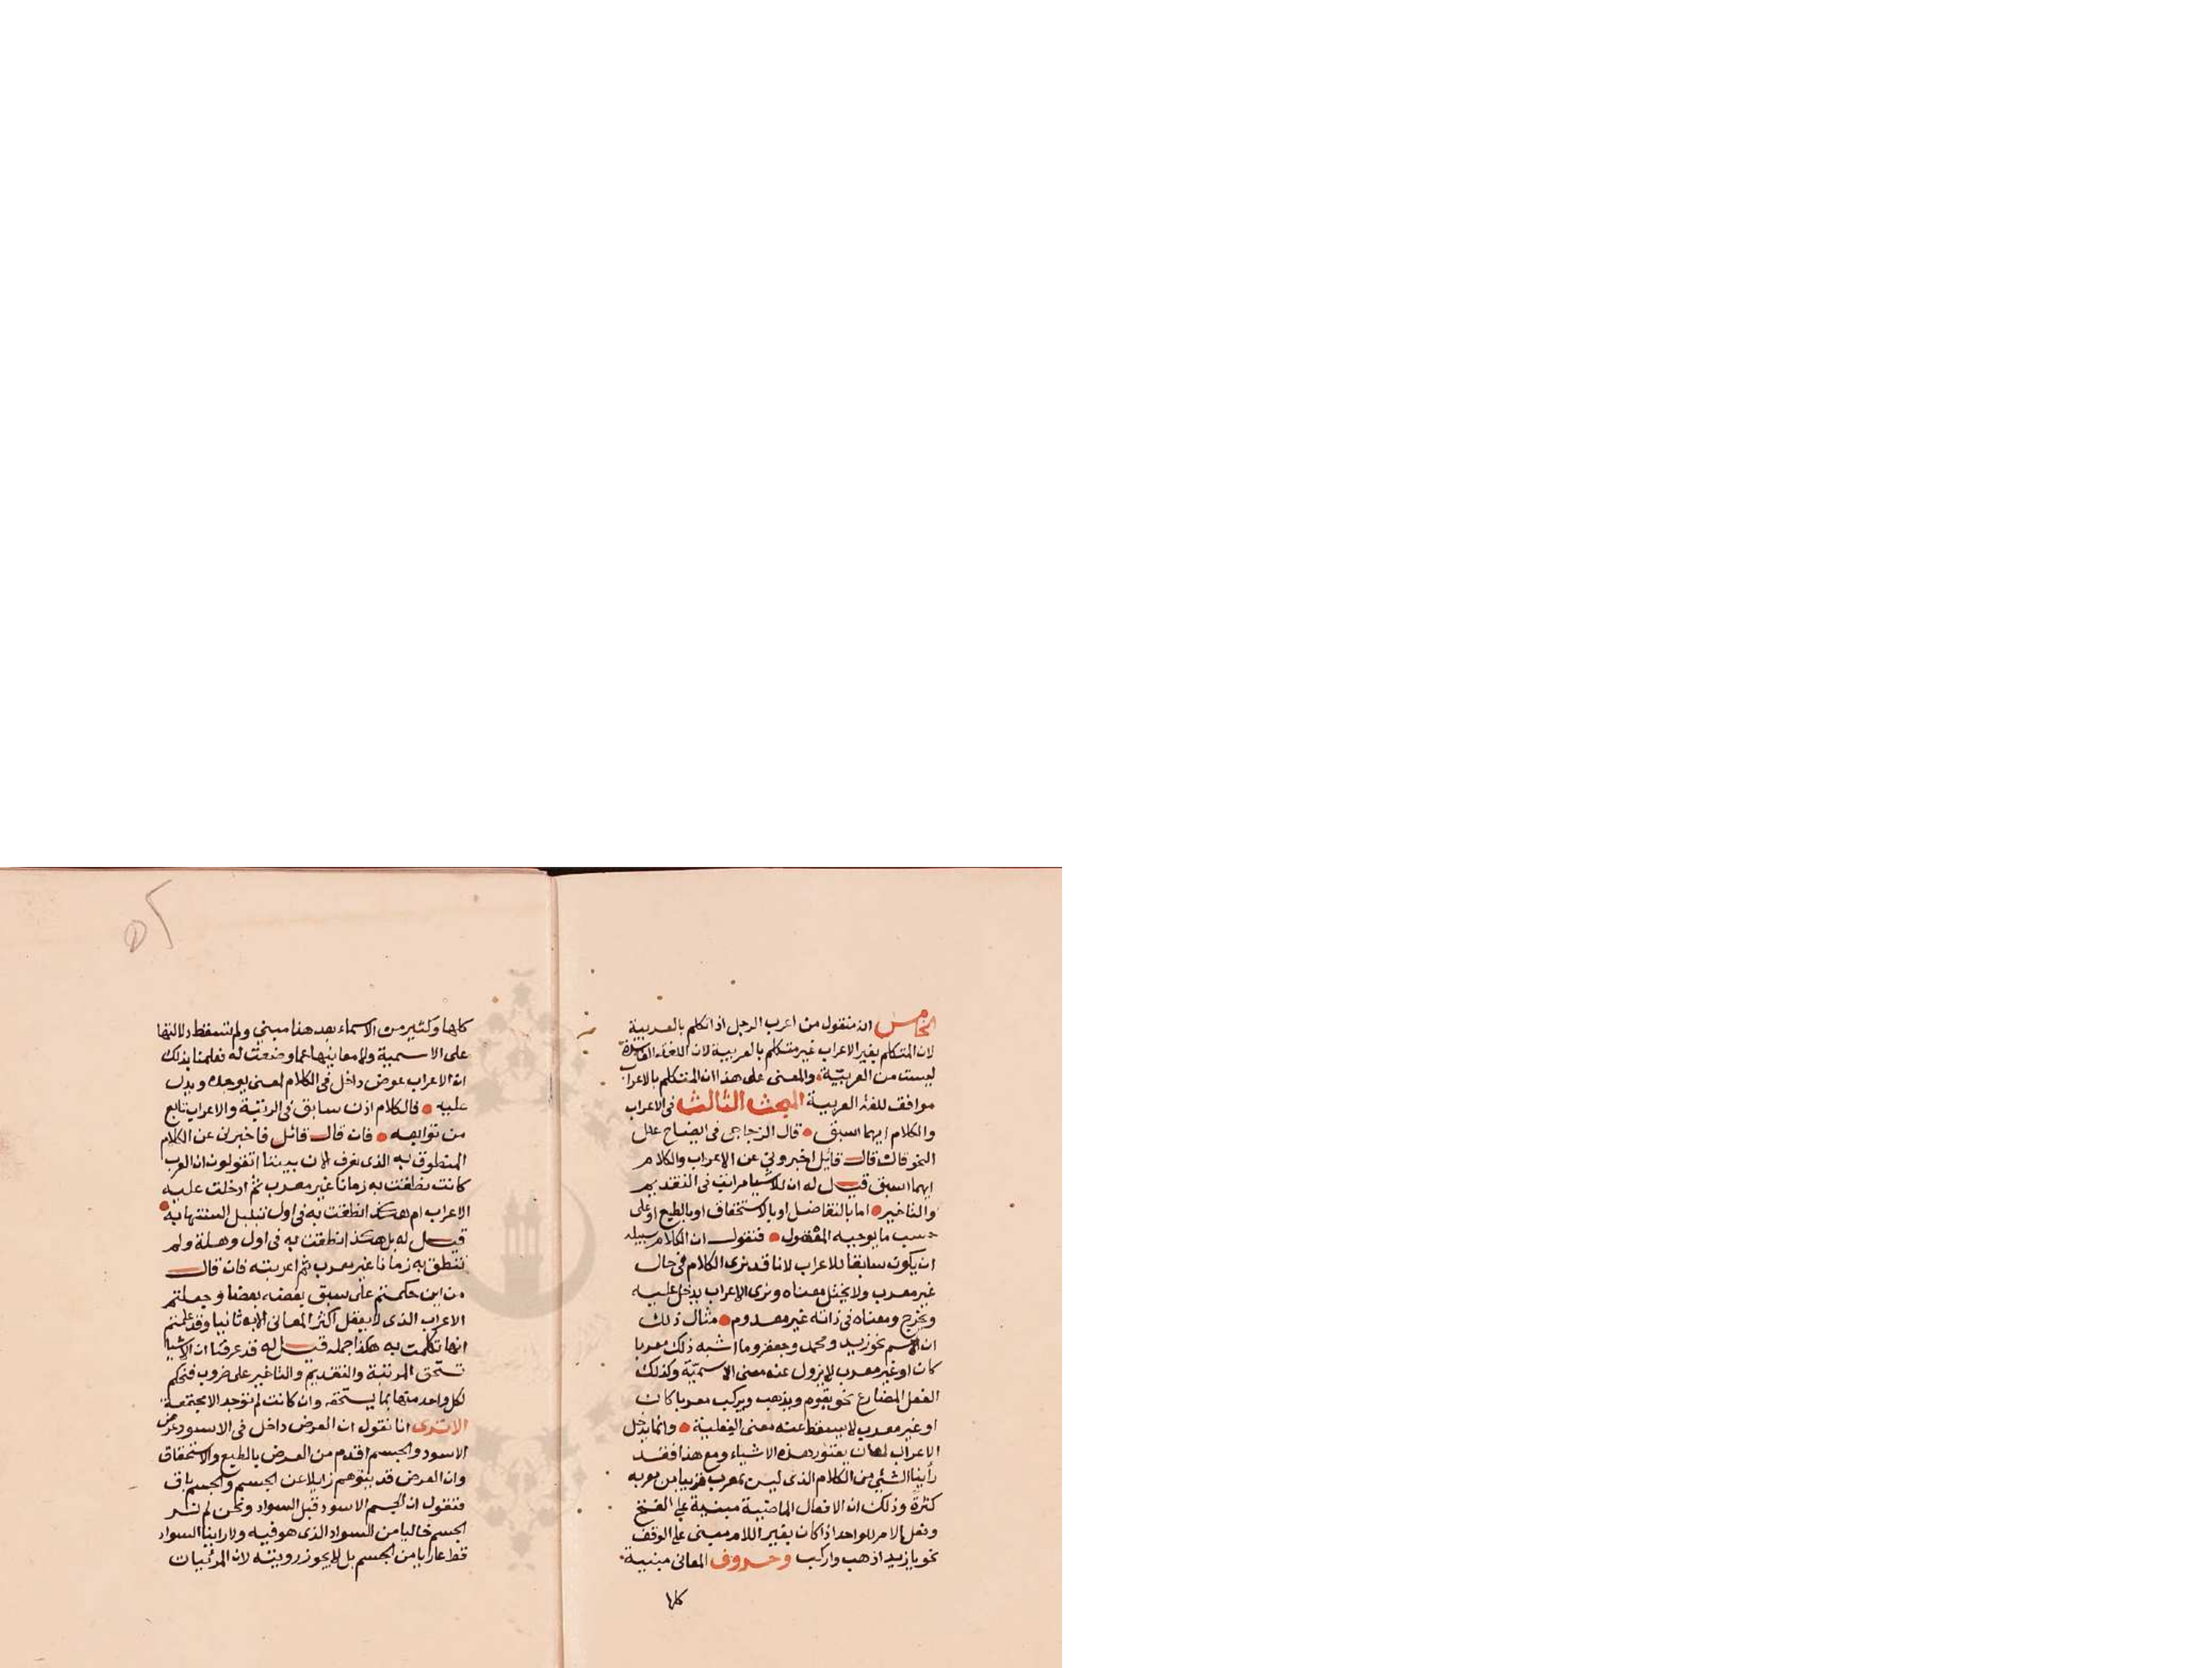 الخامس انه منقول من اعرب الرجل اذا تكلم بالعربية
لان المتكلم بغير الاعراب غير متكلم بالعربية لان اللغة الفاسدة
ليست من العربية والمعنى على هذا ان المتكلم بالاعراب
موافق للغة العربية المبحث الثالث في الاعراب
والكلام ايهما اسبق قال الزجاجي في ايضاح علل
النحو فان قال قائل اخبروني عن الاعراب والكلام
ايهما اسبق قيل له ان للاشيا مراتب في التقديم
والتاخير اما بالتفاضل او بالاستحقاق او بالطبع او على
حسب ما يوجبه المعقول فنقول ان الكلام سبيله
ان يكون سابقا للاعراب لانا قد نرى الكلام في حال
غير معرب ولا يختل معناه ونرى الاعراب يدخل عليه
ويخرج ومعناه في ذاته غير معدوم مثال ذلك
ان الاسم نحو زيد ومحمد وجعفر وما اشبه ذلك معربا
كان او غير معرب لا يزول عنه معنى الاسمية وكذلك
الفعل المضارع نحو يقوم ويذهب ويركب معربا كان
او غير معرب لا يسقط عنه معنى الفعلية وانما يدخل
الاعراب لمعان يعتور هذه الاشياء ومع هذا فقد
رأينا الشئ من الكلام الذي ليس بمعرب قريبا من معربه
كثرة وذلك ان الافعال الماضية مبنية على الفتح
وفعل الامر للواحد اذا كان بغير اللام مبنى على الوقف
نحو يا زيد اذهب واركب وحروف المعاني مبنية
كلها
٥٢
كلها وكثير من الاسماء بعد هذا مبني ولم تسقط دلالتها
على الاسمية ولا معانيها عما وضعت له فعلمنا بذلك
ان الاعراب عرض داخل في الكلام لمعنى يوجده ويدل
عليه فالكلام اذن سابق في الرتبة والاعراب تابع
من توابعه فان قال قائل فاخبرني عن الكلام
المنطوق به الذي نعرف الان بيننا اتقولون ان العرب
كانت نطقت به زمانا غير معرب ثم ادخلت عليه
الاعراب ام هكذا نطقت به في اول تبلبل السنتها به
قيل له بل هكذا نطقت به في اول وهلة ولم
تنطق به زمانا غير معرب ثم اعربته فان قال
من اين حكمتم على سبق بعضه بعضا وجعلتم
الاعراب الذي لا يعقل اكثر المعاني الا به ثانيا وقد علمتم
انها تكلمت به هكذا جملة قيل له قد عرفنا ان الاشيا
تستحق المرتبة والتقديم والتاخير على ضروب فنحكم
لكل واحد منها بما يستحقه وان كانت لم توجد الا مجتمعة
الا ترى انا نقول ان العرض داخل في الاسود عرض
الاسود والجسم اقدم من العرض بالطبع والاستحقاق
وان العرض قد يتوهم زايلا عن الجسم والجسم باق
فنقول ان الجسم الاسود قبل السواد ونحن لم نر
الجسم خاليا من السواد الذي هو فيه ولا راينا السواد
قط عاريا من الجسم بل لا يجوز رويته لان المرئيات